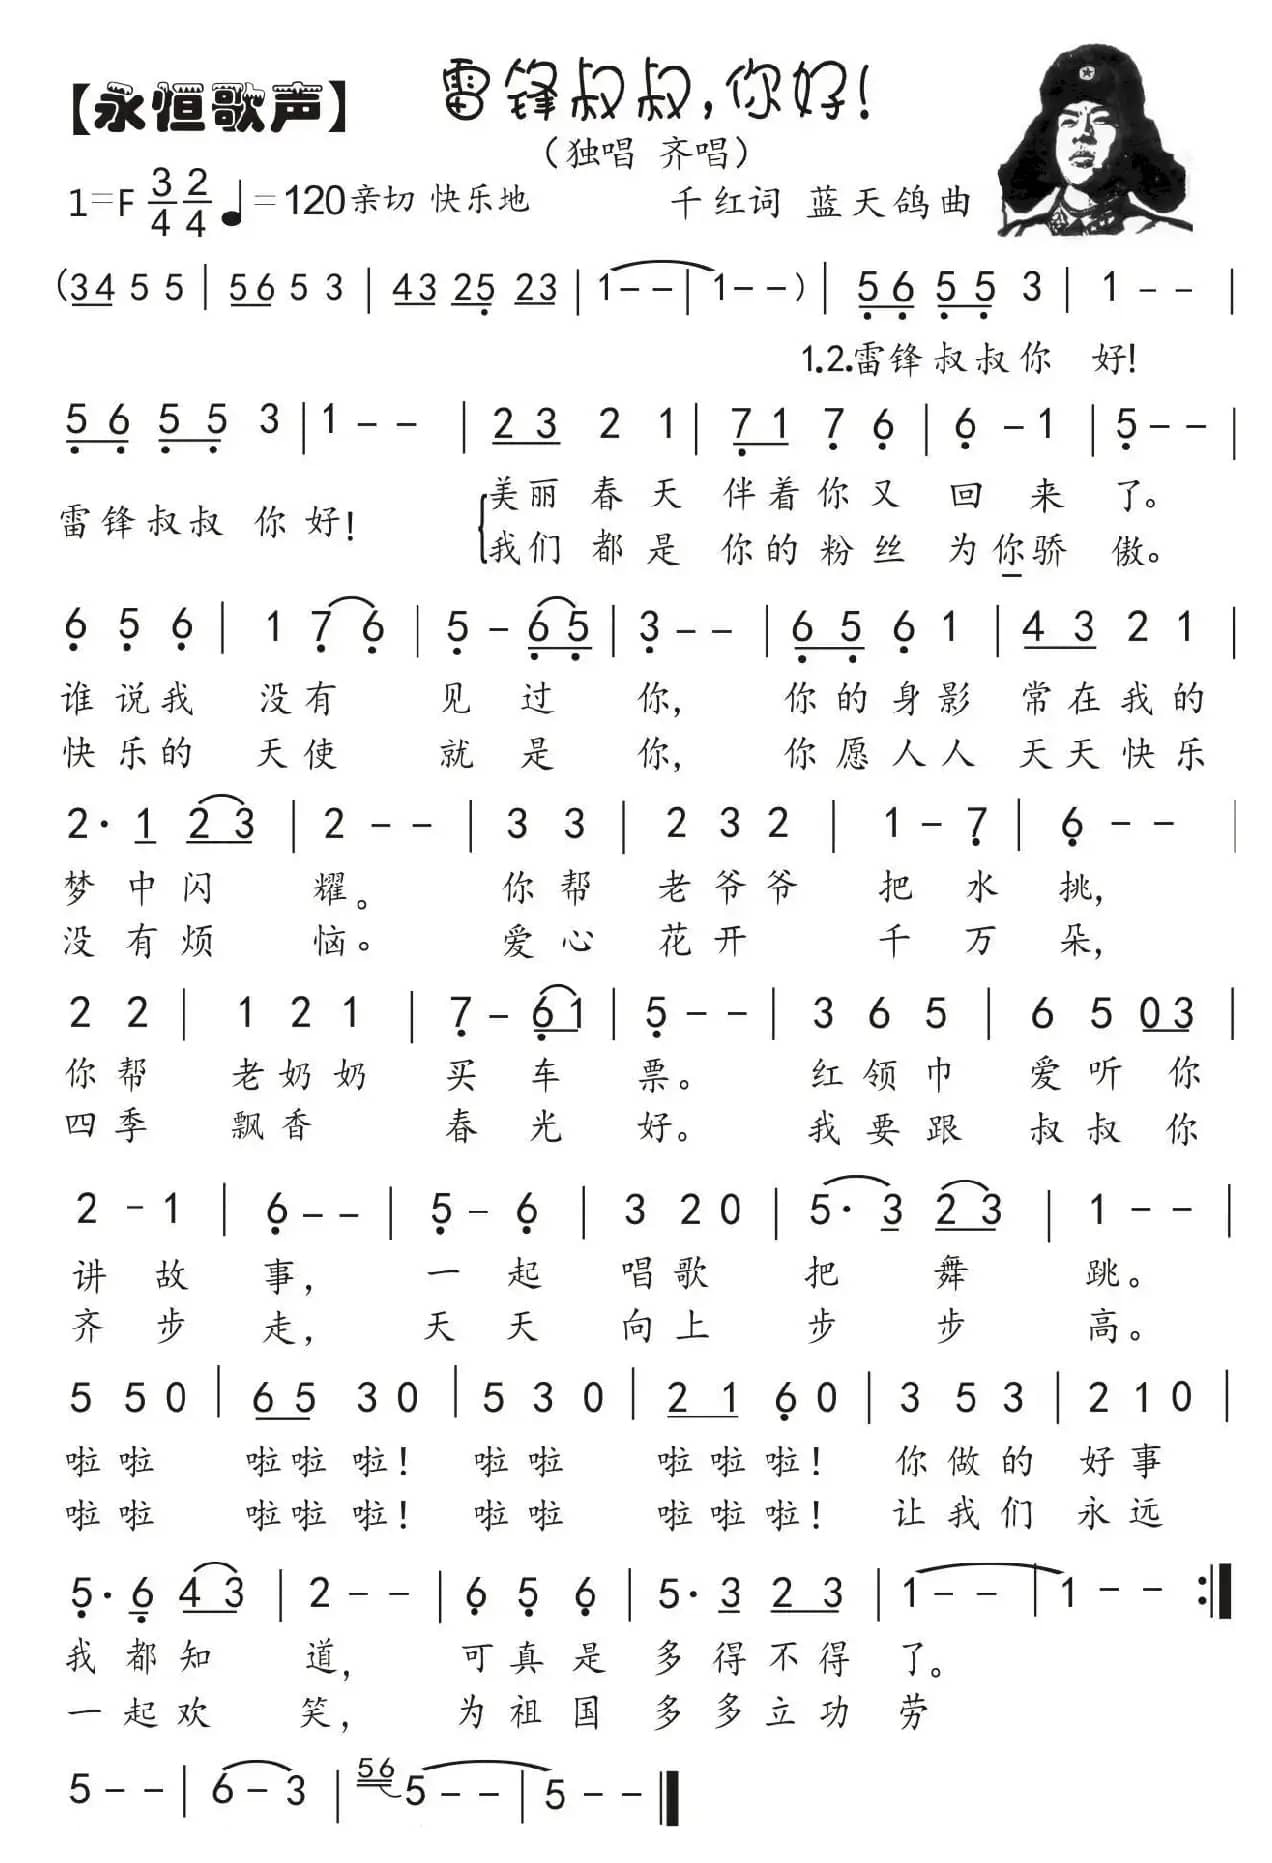 【永恒歌声】
雷锋叔叔,你好!
（独唱 齐唱）
1=F 3/4 2/4 ♩=120 亲切 快乐地 千红词 蓝天鸽曲
(3 4 5 5 | 5 6 5 3 | 4 3 2 5̣ 2 3 | 1 - - | 1 - - ) | 5̣ 6̣ 5̣ 5̣ 3 | 1 - - |
1.2.雷锋叔叔你 好!
5̣ 6̣ 5̣ 5̣ 3 | 1 - - | 2 3 2 1 | 7̣ 1 7̣ 6̣ | 6̣ - 1 | 5̣ - - |
雷锋叔叔 你好! 美丽春天 伴着你又 回来 了。
我们都是 你的粉丝 为你骄 傲。
6̣ 5̣ 6̣ | 1 7̣ 6̣ | 5̣ - 6̣ 5̣ | 3̣ - - | 6̣ 5̣ 6̣ 1 | 4 3 2 1 |
谁说我 没有 见过 你, 你的身影 常在我的
快乐的 天使 就是 你, 你愿人人 天天快乐
2· 1 2 3 | 2 - - | 3 3 | 2 3 2 | 1 - 7̣ | 6̣ - - |
梦中闪 耀。 你帮 老爷爷 把水 挑,
没有烦 恼。 爱心 花开 千万 朵,
2 2 | 1 2 1 | 7̣ - 6̣ 1 | 5̣ - - | 3 6 5 | 6 5 0 3 |
你帮 老奶奶 买车 票。 红领巾 爱听你
四季 飘香 春光 好。 我要跟 叔叔你
2 - 1 | 6̣ - - | 5̣ - 6̣ | 3 2 0 | 5· 3 2 3 | 1 - - |
讲故 事, 一起 唱歌 把舞 跳。
齐步 走, 天天 向上 步步 高。
5 5 0 | 6 5 3 0 | 5 3 0 | 2 1 6̣ 0 | 3 5 3 | 2 1 0 |
啦啦 啦啦啦! 啦啦 啦啦啦! 你做的 好事
啦啦 啦啦啦! 啦啦 啦啦啦! 让我们 永远
5̣· 6̣ 4 3 | 2 - - | 6̣ 5̣ 6̣ | 5· 3 2 3 | 1 - - | 1 - - :|
我都知 道, 可真是 多得不得 了。
一起欢 笑, 为祖国 多多立功 劳
5 - - | 6 - 3 | 5 6 5 - - | 5 - - |